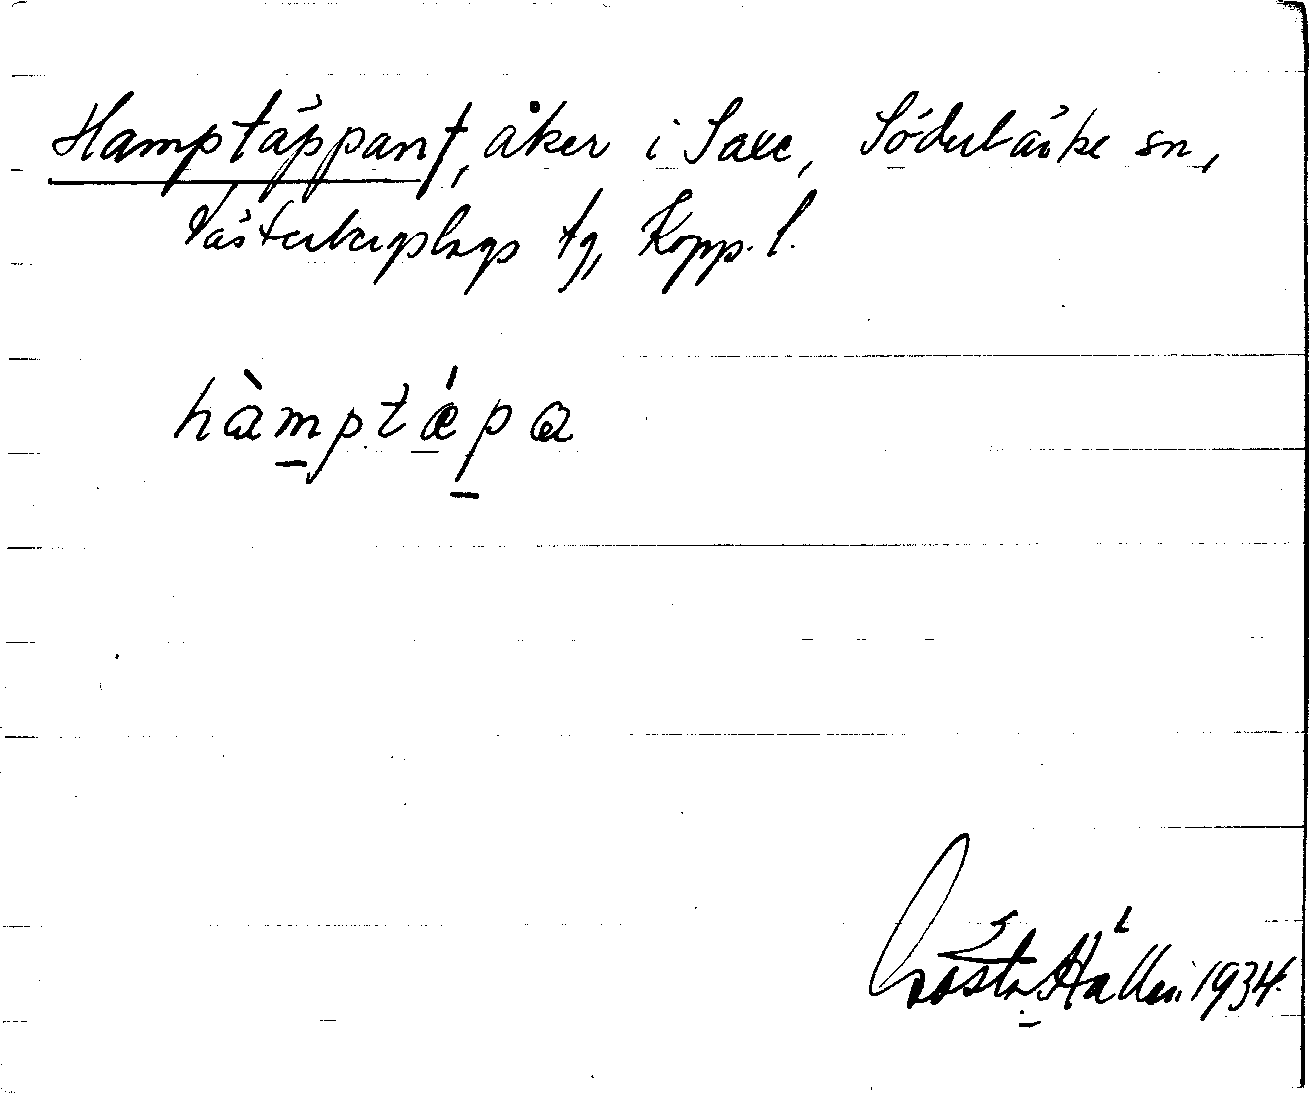 Hamptäppan†, åker i Saxe, Söderbärke sn,
Västerbergslags tg, Kopp. l.
hàmptǽpa
Gösta Hällén 1934.